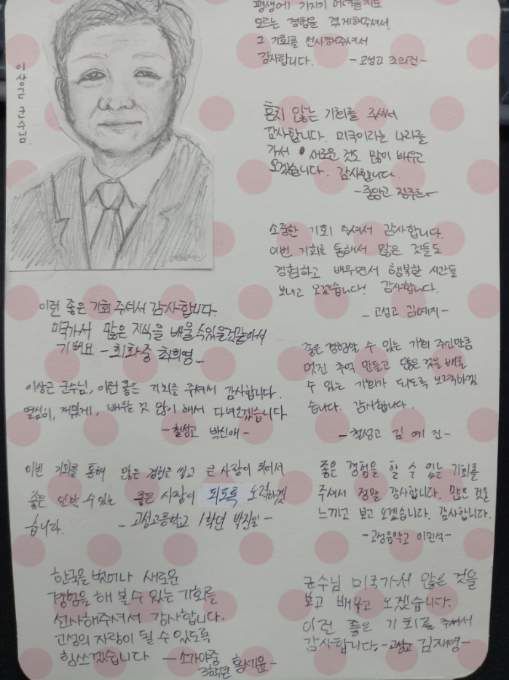 이상근 군수님
평생에 가지기 어려울지도
모르는 경험을 갖게해주셔서
그 기회를 선사해주셔서
감사합니다. -고성고
흔치 않은 기회를 주셔서
감사합니다. 미국이라는 나라를
가서 새로운 것도 많이 배우고
오겠습니다. 감사합니다.
소중한 기회 주셔서 감사합니다.
이번 기회를 통해서 많은 것들도
경험하고 배우면서 행복한 시간을
보내고 오겠습니다! 감사합니다.
-고성고 김예지-
이런 좋은 기회 주셔서 감사합니다
미국가서 많은 지식을 배울수있을것같아서
기뻐요 -회화중 최희명-
좋은 경험할 수 있는 기회 주신만큼
멋진 추억 만들고 많은 것을 배울
수 있는 기회가 되도록 노력하겠
습니다. 감사합니다.
-철성고 김예진-
이상근 군수님, 이런 좋은 기회를 주셔서 감사합니다.
열심히, 재밌게, 배우는 것 많이 해서 다녀오겠습니다
-철성고 박신애-
이번 기회를 통해 많은 경험으로 쌓고 큰 사람이 되어서
좋은 수 있는 좋은 사람이 되도록 노력하겠
습니다. -고성고등학교 1학년
좋은 경험을 할 수 있는 기회를
주셔서 정말 감사합니다. 많은 것을
느끼고 보고 오겠습니다. 감사합니다.
-고성음악고 이민석-
한국을 벗어나 새로운
경험을 해 볼 수 있는 기회를
선사해주셔서 감사합니다.
고성의 자랑이 될 수 있도록
힘쓰겠습니다 -소가야중
3학년 황세윤-
군수님 미국가서 많은 것을
보고 배우고 오겠습니다.
이런 좋은 기회를 주셔서
감사합니다. -고성고 김재영-